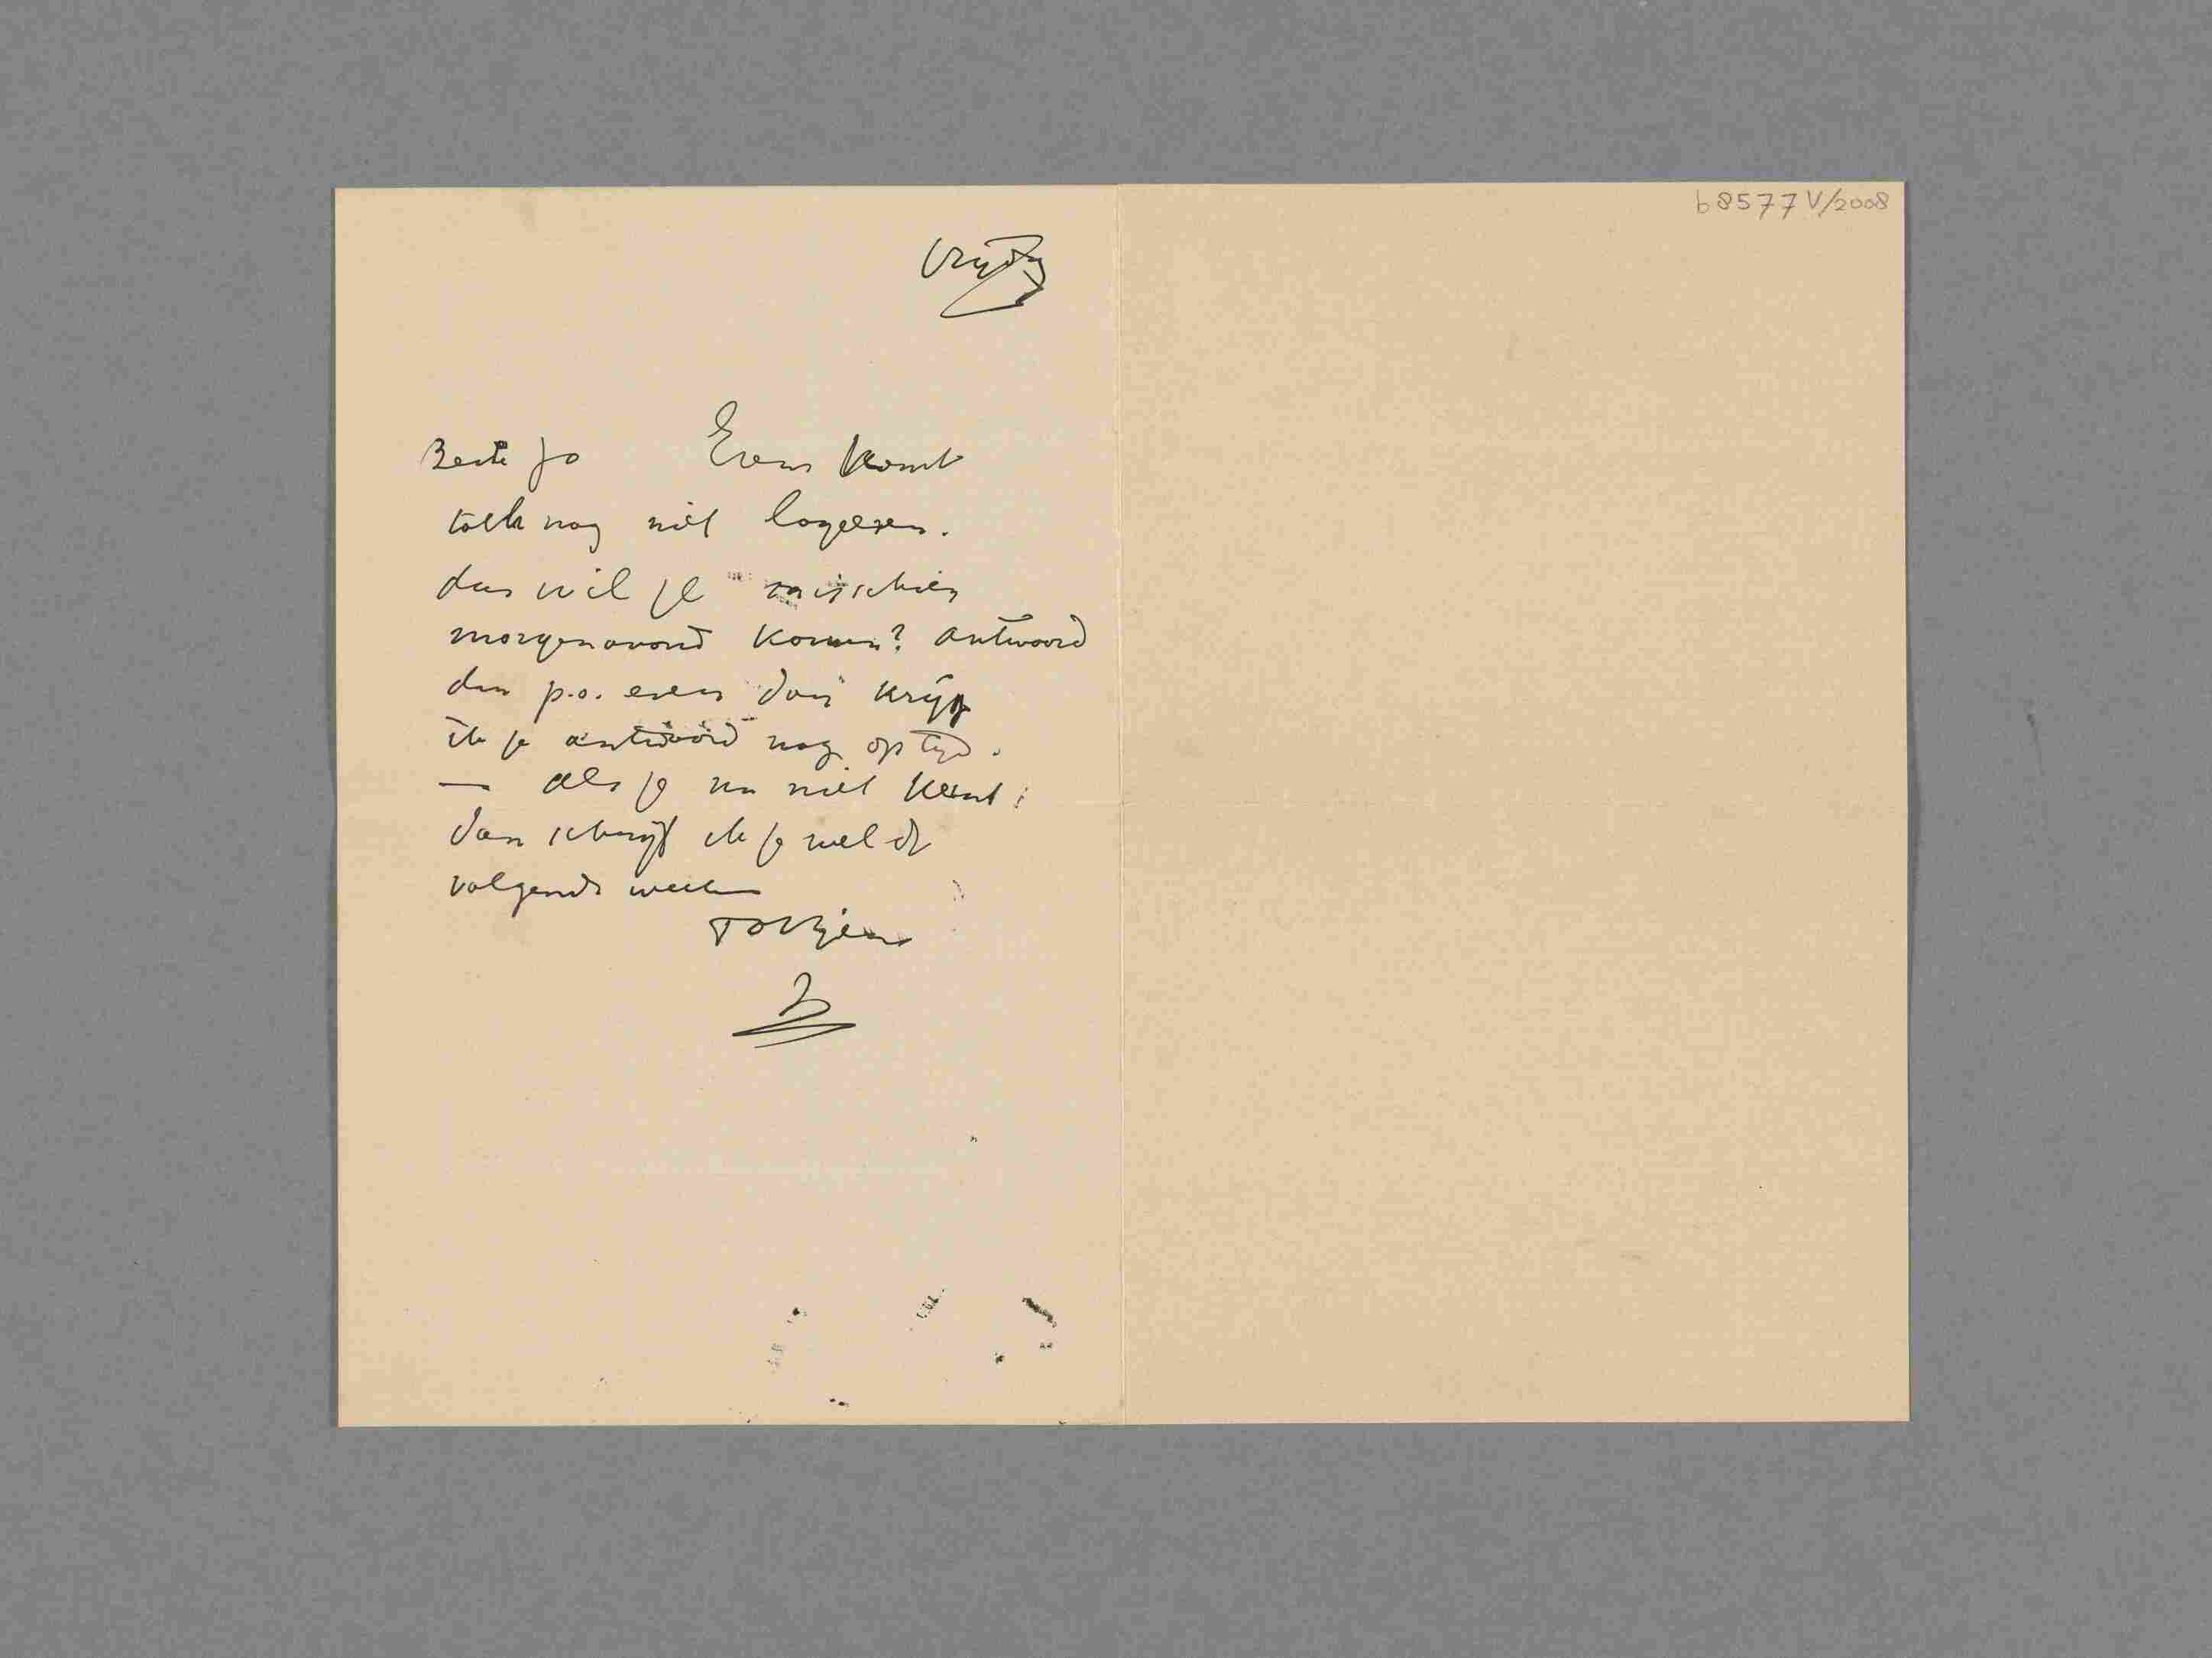 b8577 V/2008
Vrijdag
Beste Jo Evens komt
toch nog niet logeeren.
dus wil je misschien
morgenavond komen? antwoord
dan p.o. even dan krijg
ik je antwoord nog op tijd.
— als je nu niet kunt,
dan schrijf ik je wel de
volgende week
Tot ziens
B